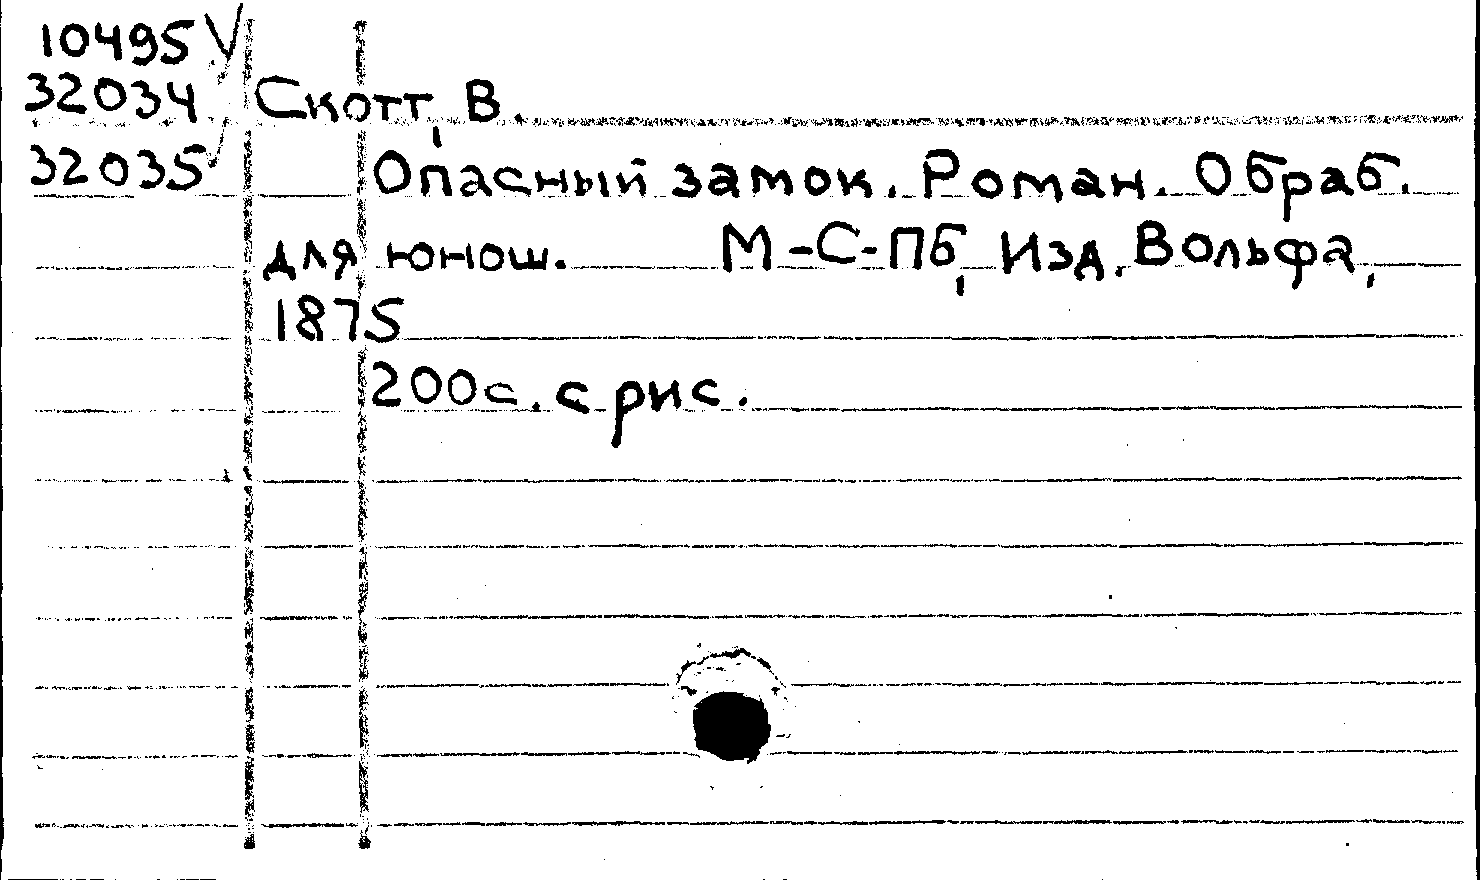 10495 √
32034 Скотт, В.
32035 √ Опасный замок. Роман. Обраб.
для юнош. М-С-Пб, Изд. Вольфа,
1875
200с. с рис.